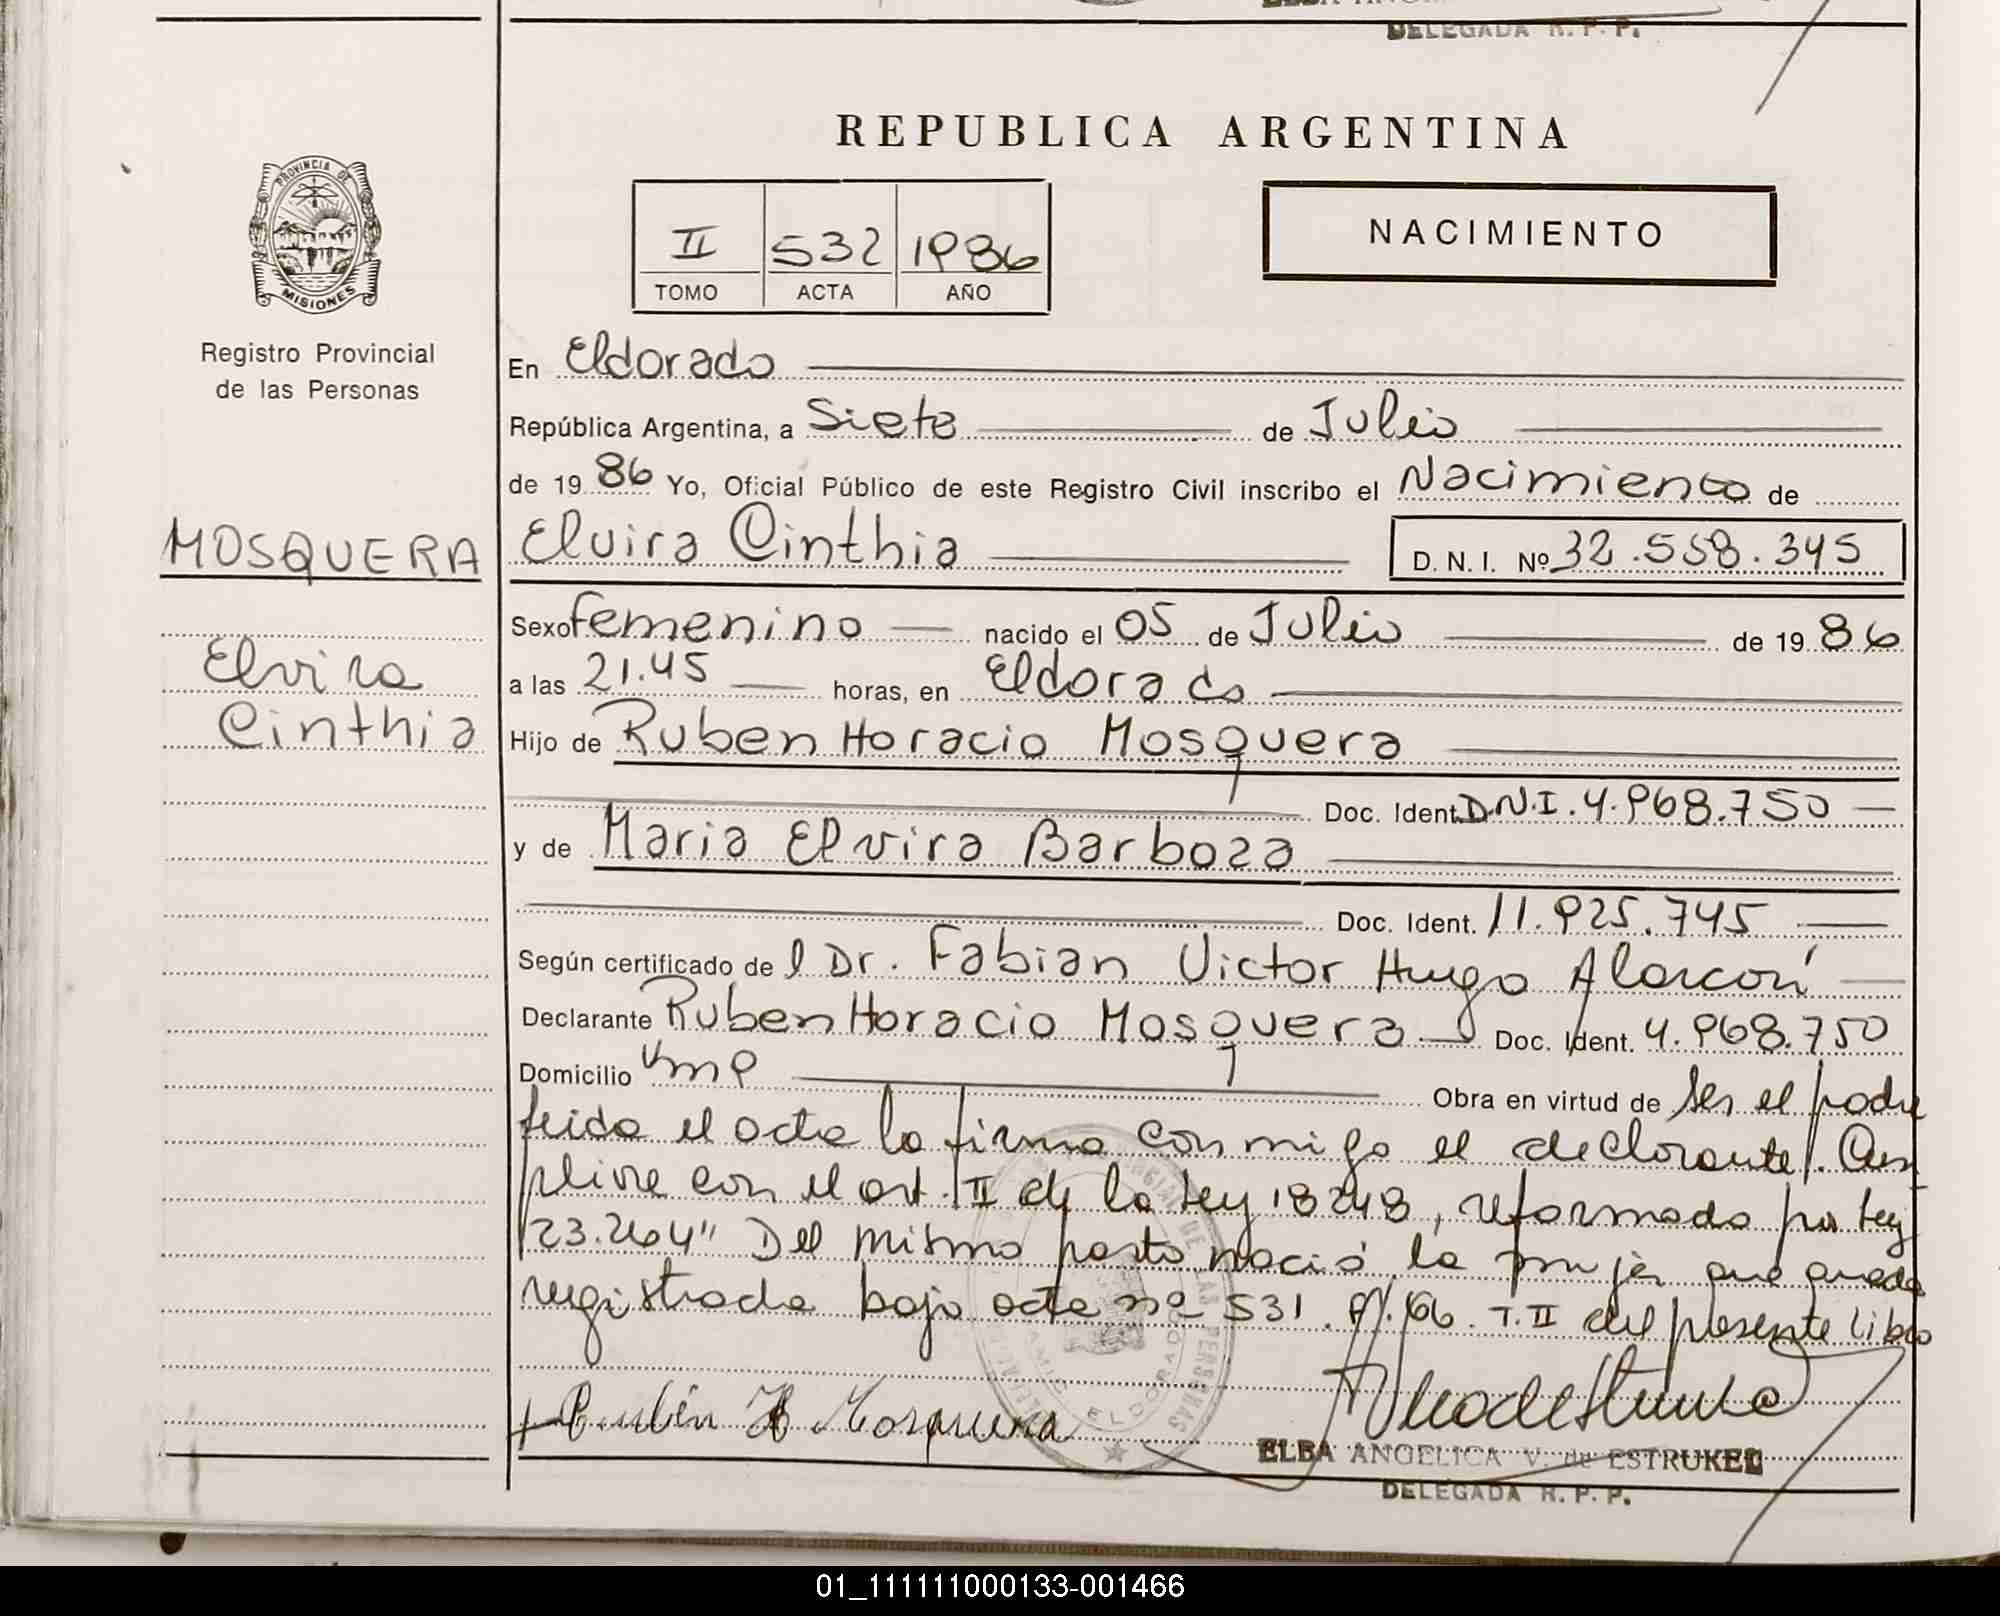 DELEGADA R. P. P.
REPUBLICA ARGENTINA
PROVINCIA DE
MISIONES
Registro Provincial
de las Personas
II 532 1986
TOMO ACTA AÑO
NACIMIENTO
En Eldorado
República Argentina, a Siete de Julio
de 19 86 Yo, Oficial Público de este Registro Civil inscribo el Nacimiento de
MOSQUERA
Elvira Cinthia D. N. I. Nº 32.558.345
Elvira
Cinthia
Sexo femenino nacido el 05 de Julio de 19 86
a las 21.45 horas, en Eldorado
Hijo de Ruben Horacio Mosquera
Doc. Ident. D.N.I. 4.968.750
y de Maria Elvira Barboza
Doc. Ident. 11.925.745
Según certificado de l Dr. Fabian Victor Hugo Alarcón
Declarante Ruben Horacio Mosquera Doc. Ident. 4.968.750
Domicilio Obra en virtud de ser el padre
leida el acta la firma conmigo el declarante. Cum
plive con el art. II de la Ley 18248, reformado por Ley
23.264" Del mismo parto nació la mujer que queda
registrada bajo acta nº 531. T.II del presente libro
Rubén H Mosquera
ELDORADO
ELBA ANGELICA V. de ESTRUKEL
DELEGADA R. P. P.
01_111111000133-001466